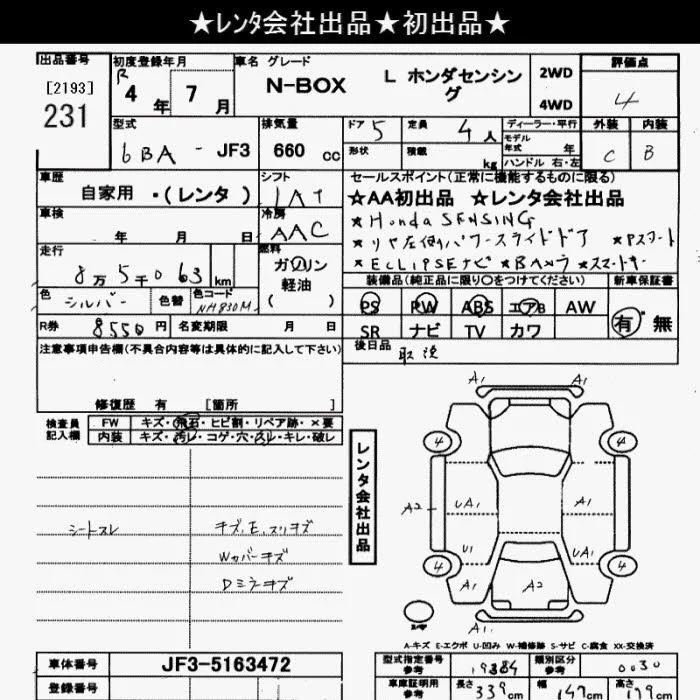 ★レンタ会社出品★初出品★
出品番号 初度登録年月 車名 グレード 評価点
[2193] R 4年 7月 N-BOX L ホンダセンシング 2WD 4WD 4
231
型式 排気量 ドア 5 定員 4人 ディーラー・平行 外装 内装
6BA - JF3 660 cc 形状 積載 kg モデル年式 年 C B
ハンドル 右・左
車歴 シフト セールスポイント(正常に機能するものに限る)
自家用 ・(レンタ) IAT ★AA初出品 ★レンタ会社出品
車検 冷房 ★Honda SENSING
年 月 日 AAC ★リヤ左側パワースライドドア ★Pスタート
走行 燃料 ★ECLIPSEナビ ★Bカメラ ★スマートキー
8万5千063km ガソリン 軽油 ( )
装備品(純正品に限り〇をつけてください) 新車保証書
色 シルバー 色替 色コード NH830M
PS PW ABS エアB AW 有・無
R券 8550円 名変期限 月 日 SR ナビ TV カワ
注意事項申告欄(不具合内容等は具体的に記入して下さい) 後日品 取説
修復歴 有 [箇所 ]
検査員記入欄 FW キズ・飛石・ヒビ割・リペア跡・×要
内装 キズ・汚レ・コゲ・穴・スレ・キレ・破レ
レンタ会社出品
シートスレ キズ、E、スリキズ
Wカバーキズ
Dミラーキズ
A1 A1
4 4
A2 UA1 A1
U1 UA1
4 4
A1 A2
A1
A-キズ E-エクボ U-凹み W-補修跡 S-サビ C-腐食 XX-交換済
車体番号 JF3-5163472 型式指定番号 参考 19384 類別区分 参考 0030
登録番号 車庫証明用 参考 長さ 339cm 幅 147cm 高さ 179cm